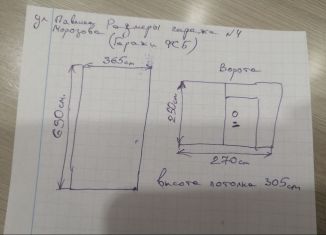 ул Павлика Морозова
Размеры гаража №4
(Гаражи ФСБ)
365см
Ворота
690см.
250см
270см
высота потолка 305см